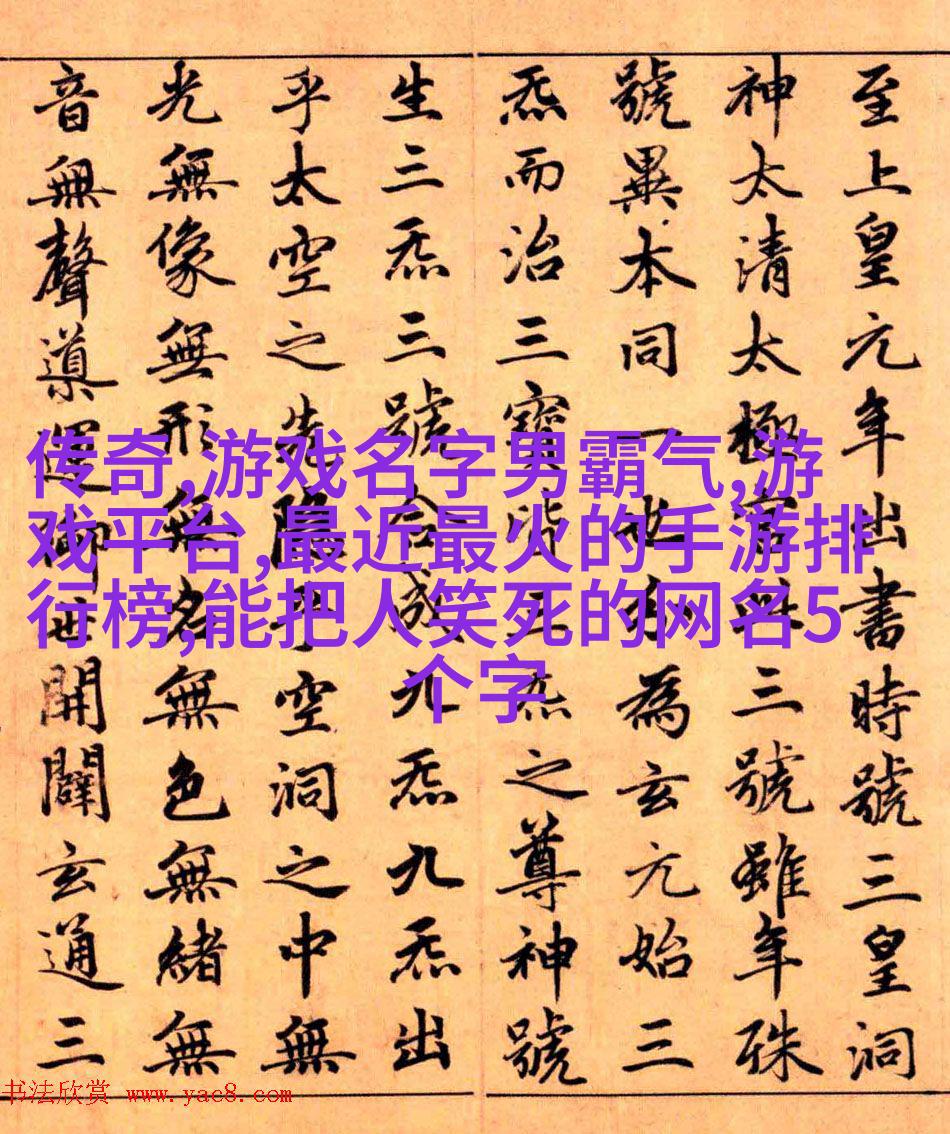 至上皇元年出書時號三皇洞
神太清太極宮此三號雖年殊
號異本同一也分為玄元始三
炁而治三寶皆三炁之尊神號
生三炁三號合成九炁九炁出
乎太空之先隱乎空洞之中無
光無像無形無名無色無緒無
音無聲導運御世開闢玄通三
传奇,游戏名字男霸气,游
戏平台,最近最火的手游排
行榜,能把人笑死的网名5
个字
书法欣赏 www.yac8.com